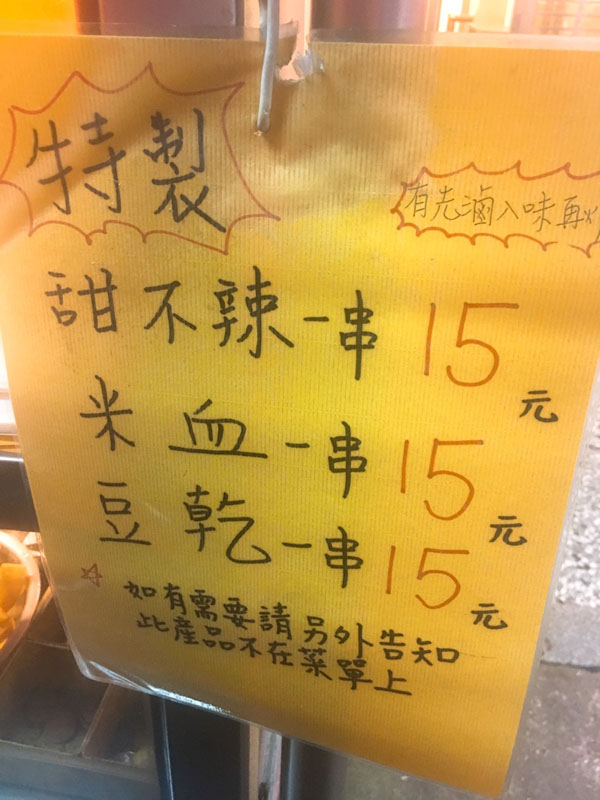 特製
有先滷入味再
甜不辣一串15元
米血一串15元
豆乾一串15元
☆如有需要請另外告知
此產品不在菜單上